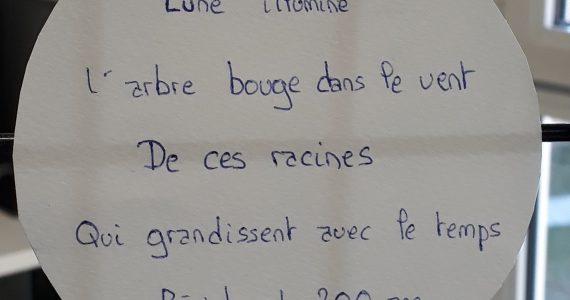 Lune illumine
L'arbre bouge dans le vent
De ces racines
Qui grandissent avec le temps